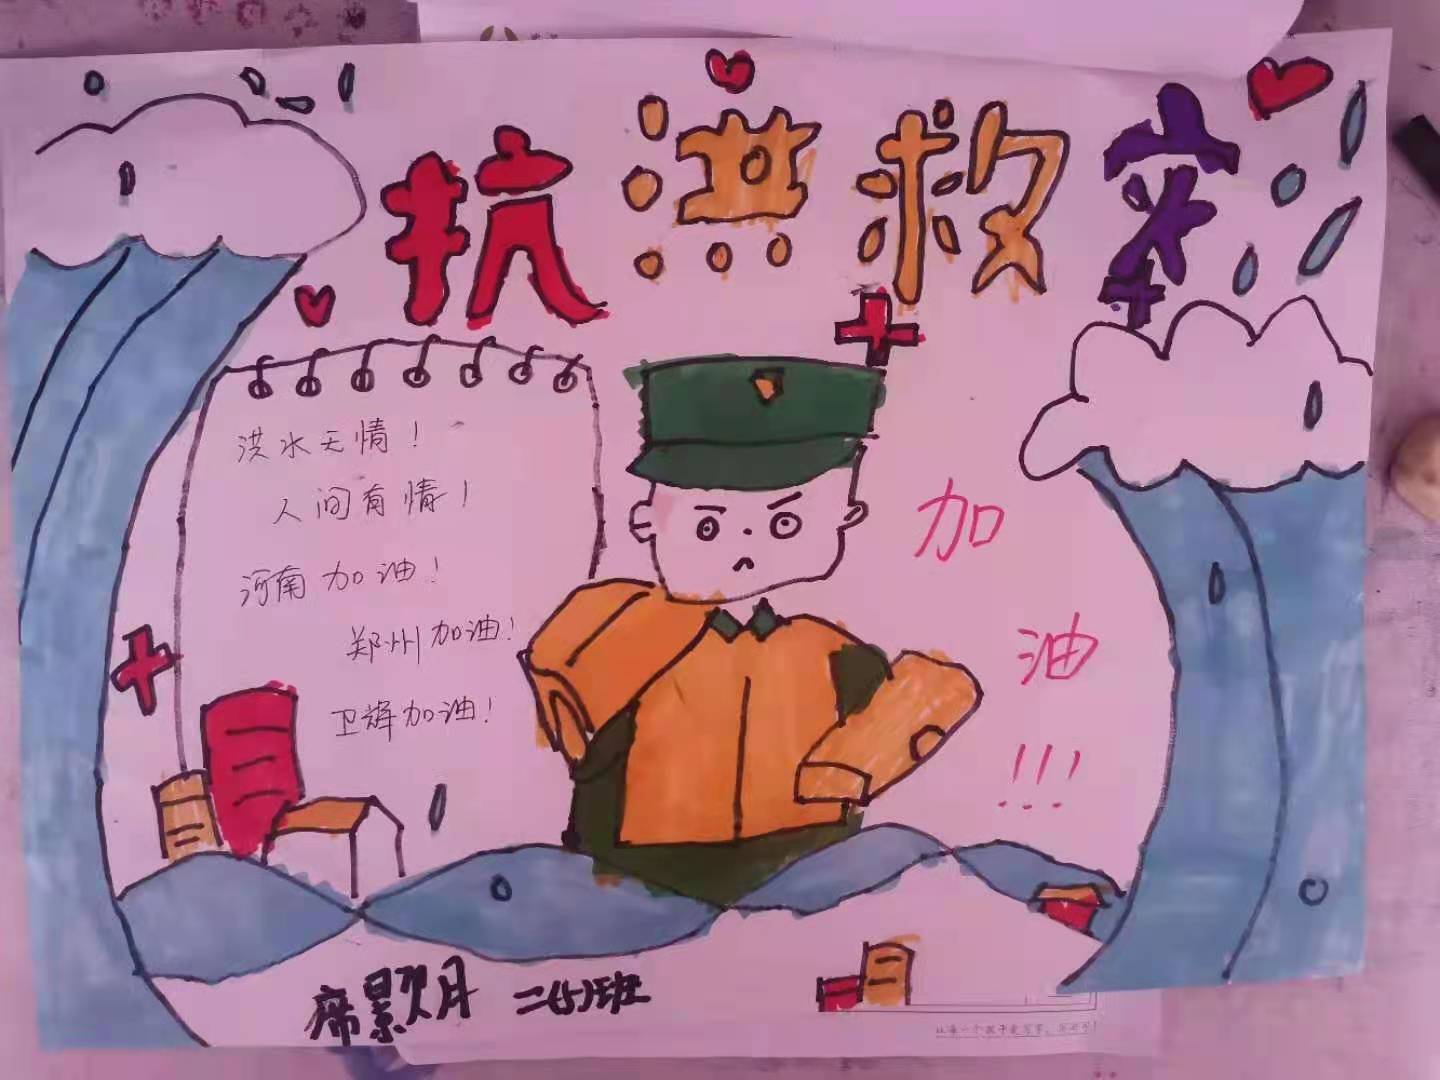 抗洪救灾
洪水无情!
人间有情!
河南加油!
郑州加油!
卫辉加油!
加
油
!!!
席景月 二(5)班